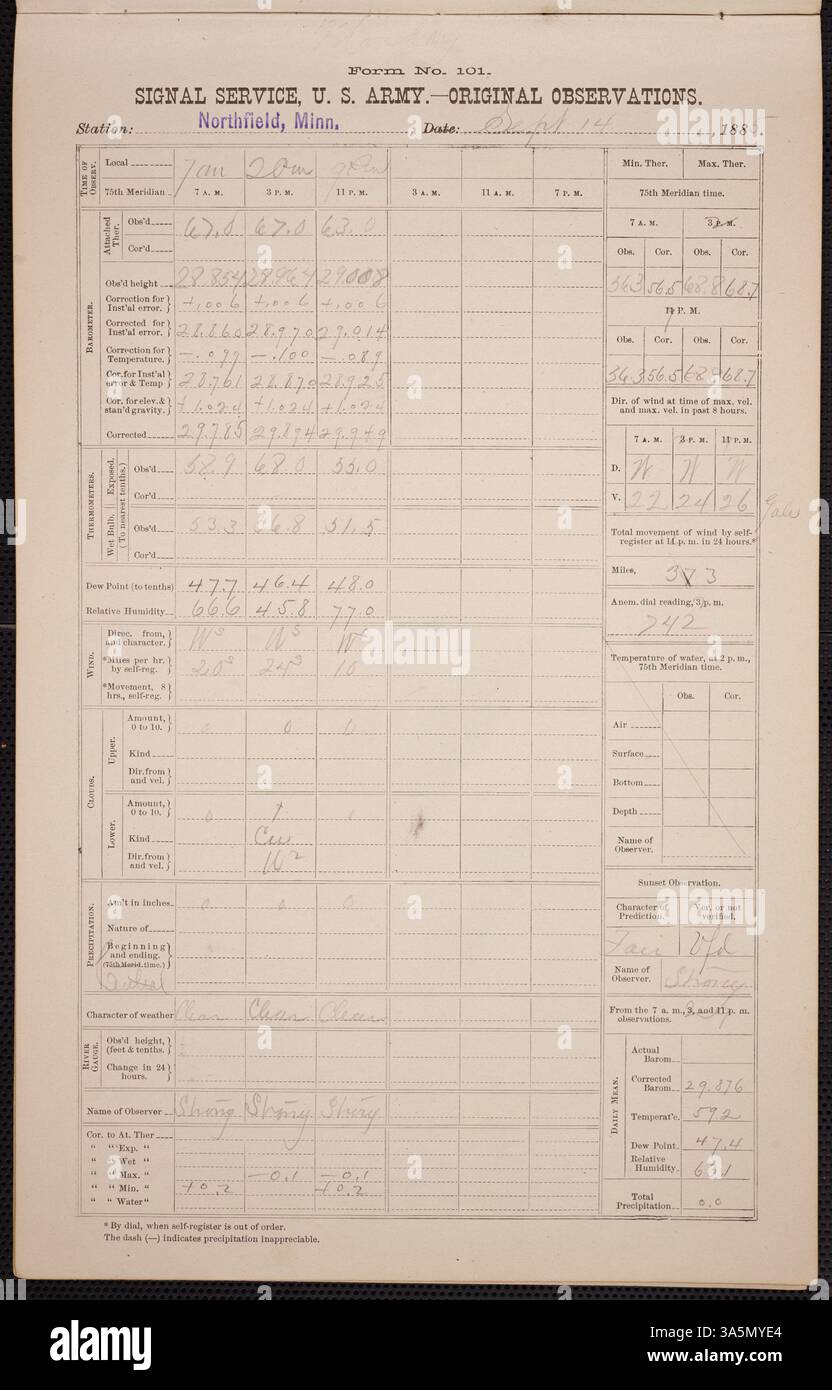 Form No. 101.
SIGNAL SERVICE, U. S. ARMY.—ORIGINAL OBSERVATIONS.
Station: Northfield, Minn. , Date: Sept 14 , 188
TIME OF OBSERV.
Local 7am 2pm 9pm
75th Meridian 7 A. M. 3 P. M. 11 P. M. 3 A. M. 11 A. M. 7 P. M.
BAROMETER.
Attached Ther.
Obs'd 67.0 67.0 63.0
Cor'd
Obs'd height 28.854 28.964 29.008
Correction for Inst'al error. +.006 +.006 +.006
Corrected for Inst'al error. 28.860 28.970 29.014
Correction for Temperature. —.099 —.100 —.089
Cor. for Inst'al error & Temp 28.761 28.870 28.925
Cor. for elev. & stan'd gravity. +1.024 +1.024 +1.024
Corrected 29.785 29.894 29.949
THERMOMETERS.
Exposed.
Wet Bulb.
(To nearest tenths.)
Obs'd 58.9 68.0 55.0
Cor'd
Obs'd 53.3 56.8 51.5
Cor'd
Dew Point (to tenths) 47.7 46.4 48.0
Relative Humidity 66.6 45.8 77.0
WIND.
Direc. from, and character. Ws Ws W
*Miles per hr. by self-reg. 20s 24s 10
*Movement, 8 hrs., self-reg.
CLOUDS.
Upper.
Amount, 0 to 10. 0 0 0
Kind
Dir. from and vel.
Lower.
Amount, 0 to 10. 0 1 0
Kind Cu
Dir. from and vel. W2
PRECIPITATION.
Am't in inches. 0 0 0
Nature of
Beginning and ending. (75th Merid. time.)
Central
Character of weather Clear Clear Clear
RIVER GAUGE.
Obs'd height, (feet & tenths.
Change in 24 hours.
Name of Observer Strong Strong Strong
Cor. to At. Ther
“ “ Exp. “
“ “ Wet “
“ “ Max. “ —0.1 —0.1
“ “ Min. “ +0.2 +0.2
“ “ Water “
* By dial, when self-register is out of order.
The dash (—) indicates precipitation inappreciable.
Min. Ther. Max. Ther.
75th Meridian time.
7 A. M. 3 P. M.
Obs. Cor. Obs. Cor.
56.5 68.8 68.7
11 P. M.
Obs. Cor. Obs. Cor.
56.5 68.7
Dir. of wind at time of max. vel. and max. vel. in past 8 hours.
7 A. M. 3 P. M. 11 P. M.
D. W W W
V. 22 24 26 Gale
Total movement of wind by self-register at 11 p. m. in 24 hours.*
Miles, 373
Anem. dial reading, 3 p. m.
742
Temperature of water, at 2 p. m., 75th Meridian time.
Obs. Cor.
Air
Surface
Bottom
Depth
Name of Observer.
Sunset Observation.
Character of Prediction. Ver. or not verified.
Fair Vfd
Name of Observer. Strong
From the 7 a. m., 3, and 11 p. m. observations.
DAILY MEAN.
Actual Barom
Corrected Barom 29.876
Temperat'e. 59.2
Dew Point. 47.4
Relative Humidity
Total Precipitation 0.0
alamy
Image ID: 3A5MYE4
www.alamy.com